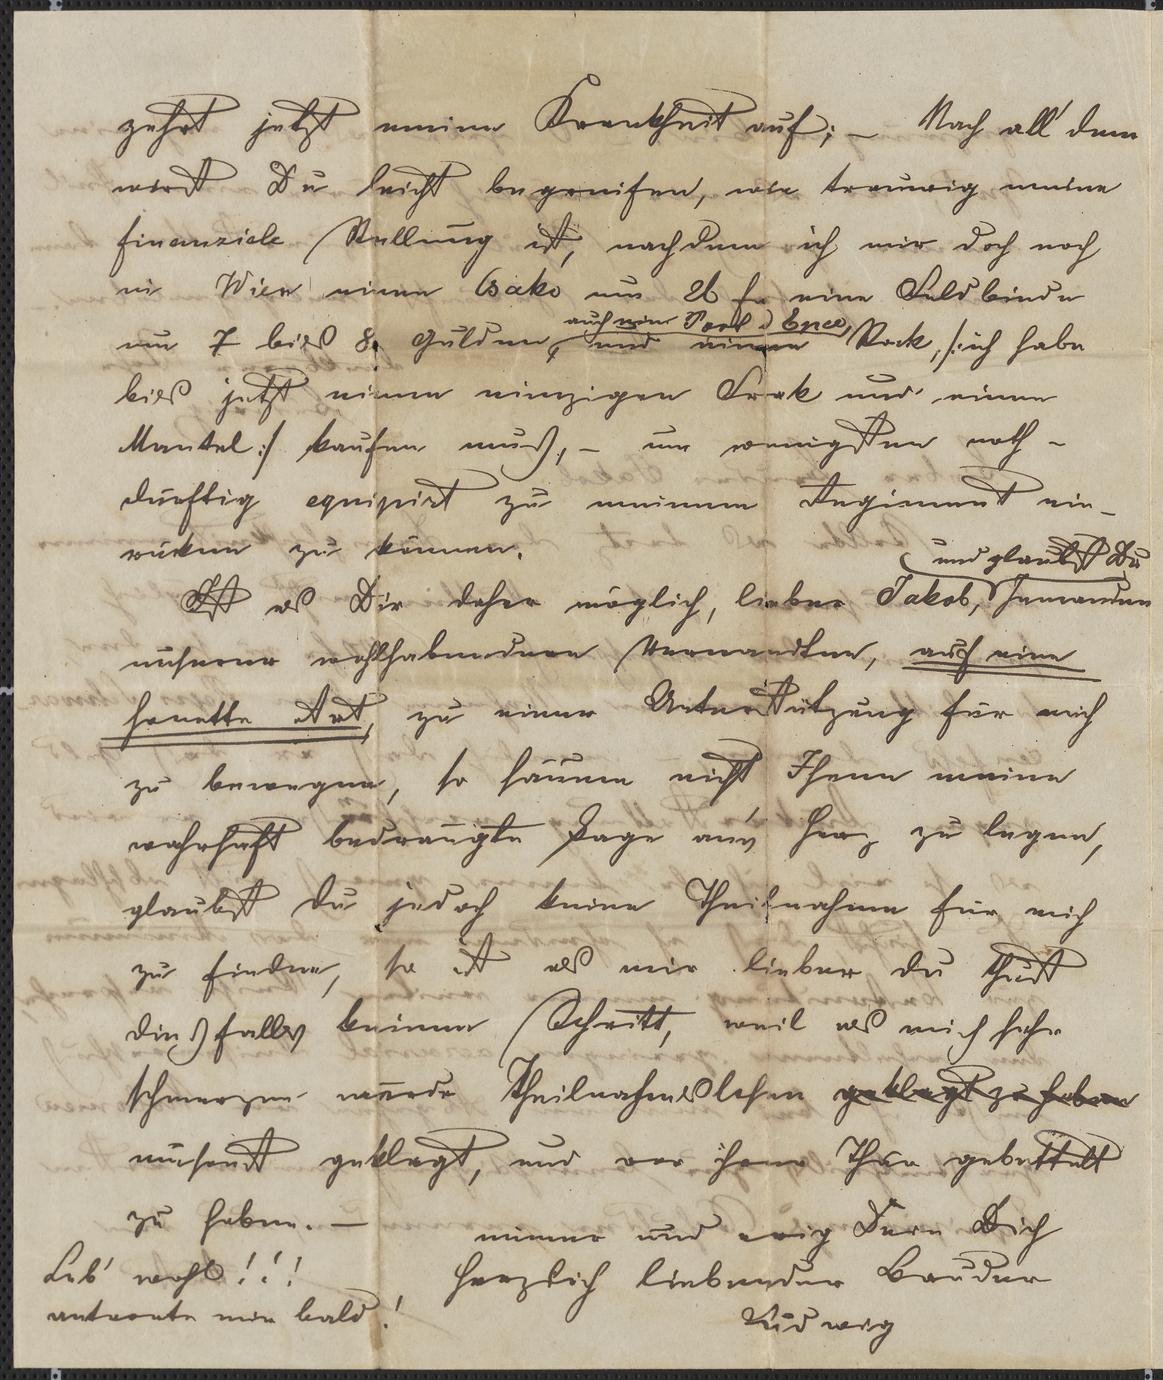 zehrt jetzt meine Krankheit auf; – Nach all' dem
wirst Du leicht begreifen, wie traurig meine
finanziele Stellung ist, nachdem ich mir doch noch
in Wien einen Csako um 26 f. eine Feldbinde
auch eine Port d'Epee,
um 7 bies 8. Gulden, und einen Rock, /:ich habe
bies jetzt einen einzigen Frak und einen
Mantel:/ kaufen muß, – um wenigsten noth-
dürftig equipirt zu meinem Regiment ein-
rücken zu können.
und glaubst Du
Ist es Dir daher möglich, lieber Jakob, Jemanden
unserer wohlhabenderen Verwandten, auf eine
honette Art, zu einer Unterstützung für mich
zu bewegen, so säume nicht Ihnen meine
wahrhaft bedrängte Lage an's Herz zu legen,
glaubst Du jedoch keine Theilnahme für mich
zu finden, so ist es mir lieber du thust
dießfalls keinen Schritt, weil es mich sehr
schmerzen würde Theilnahmeslosen geklagt zu haben
umsonst geklagt, und vor ihrer Thür gebettelt
zu haben. –
immer und ewig Dein Dich
Leb' wohl!!!
herzlich liebender Bruder
antworte mir bald!
Ludwig